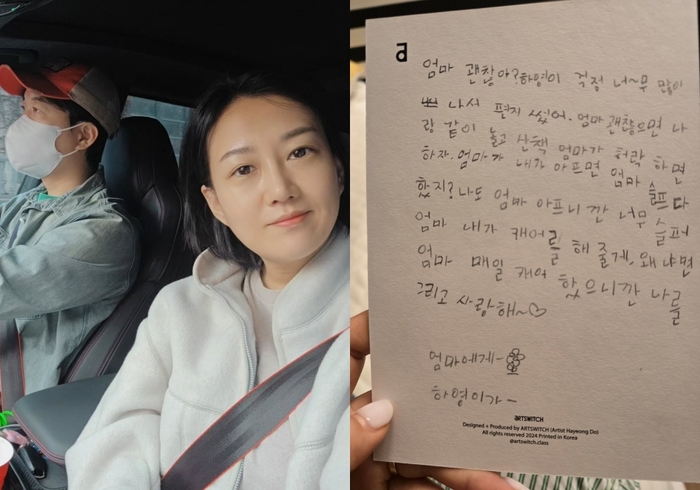 a
엄마 괜찮아? 하영이 걱정 너~무 많이
나서 편지 썼어. 엄마 괜찮으면 나
랑 같이 놀고 산책 엄마가 허락 하면
하자. 엄마가 내가 아프면 엄마 슬프다
했지? 나도 엄마 아프니깐 너무 슬퍼
엄마 내가 캐어를 해 줄게. 왜냐면
엄마 매일 캐어 했으니깐 나를
그리고 사랑해~♡
엄마에게-
하영이가-
ARTSWITCH
Designed + Produced by ARTSWITCH (Artist Hayeung Do)
All rights reserved 2024 Printed in Korea
@artswitch.class